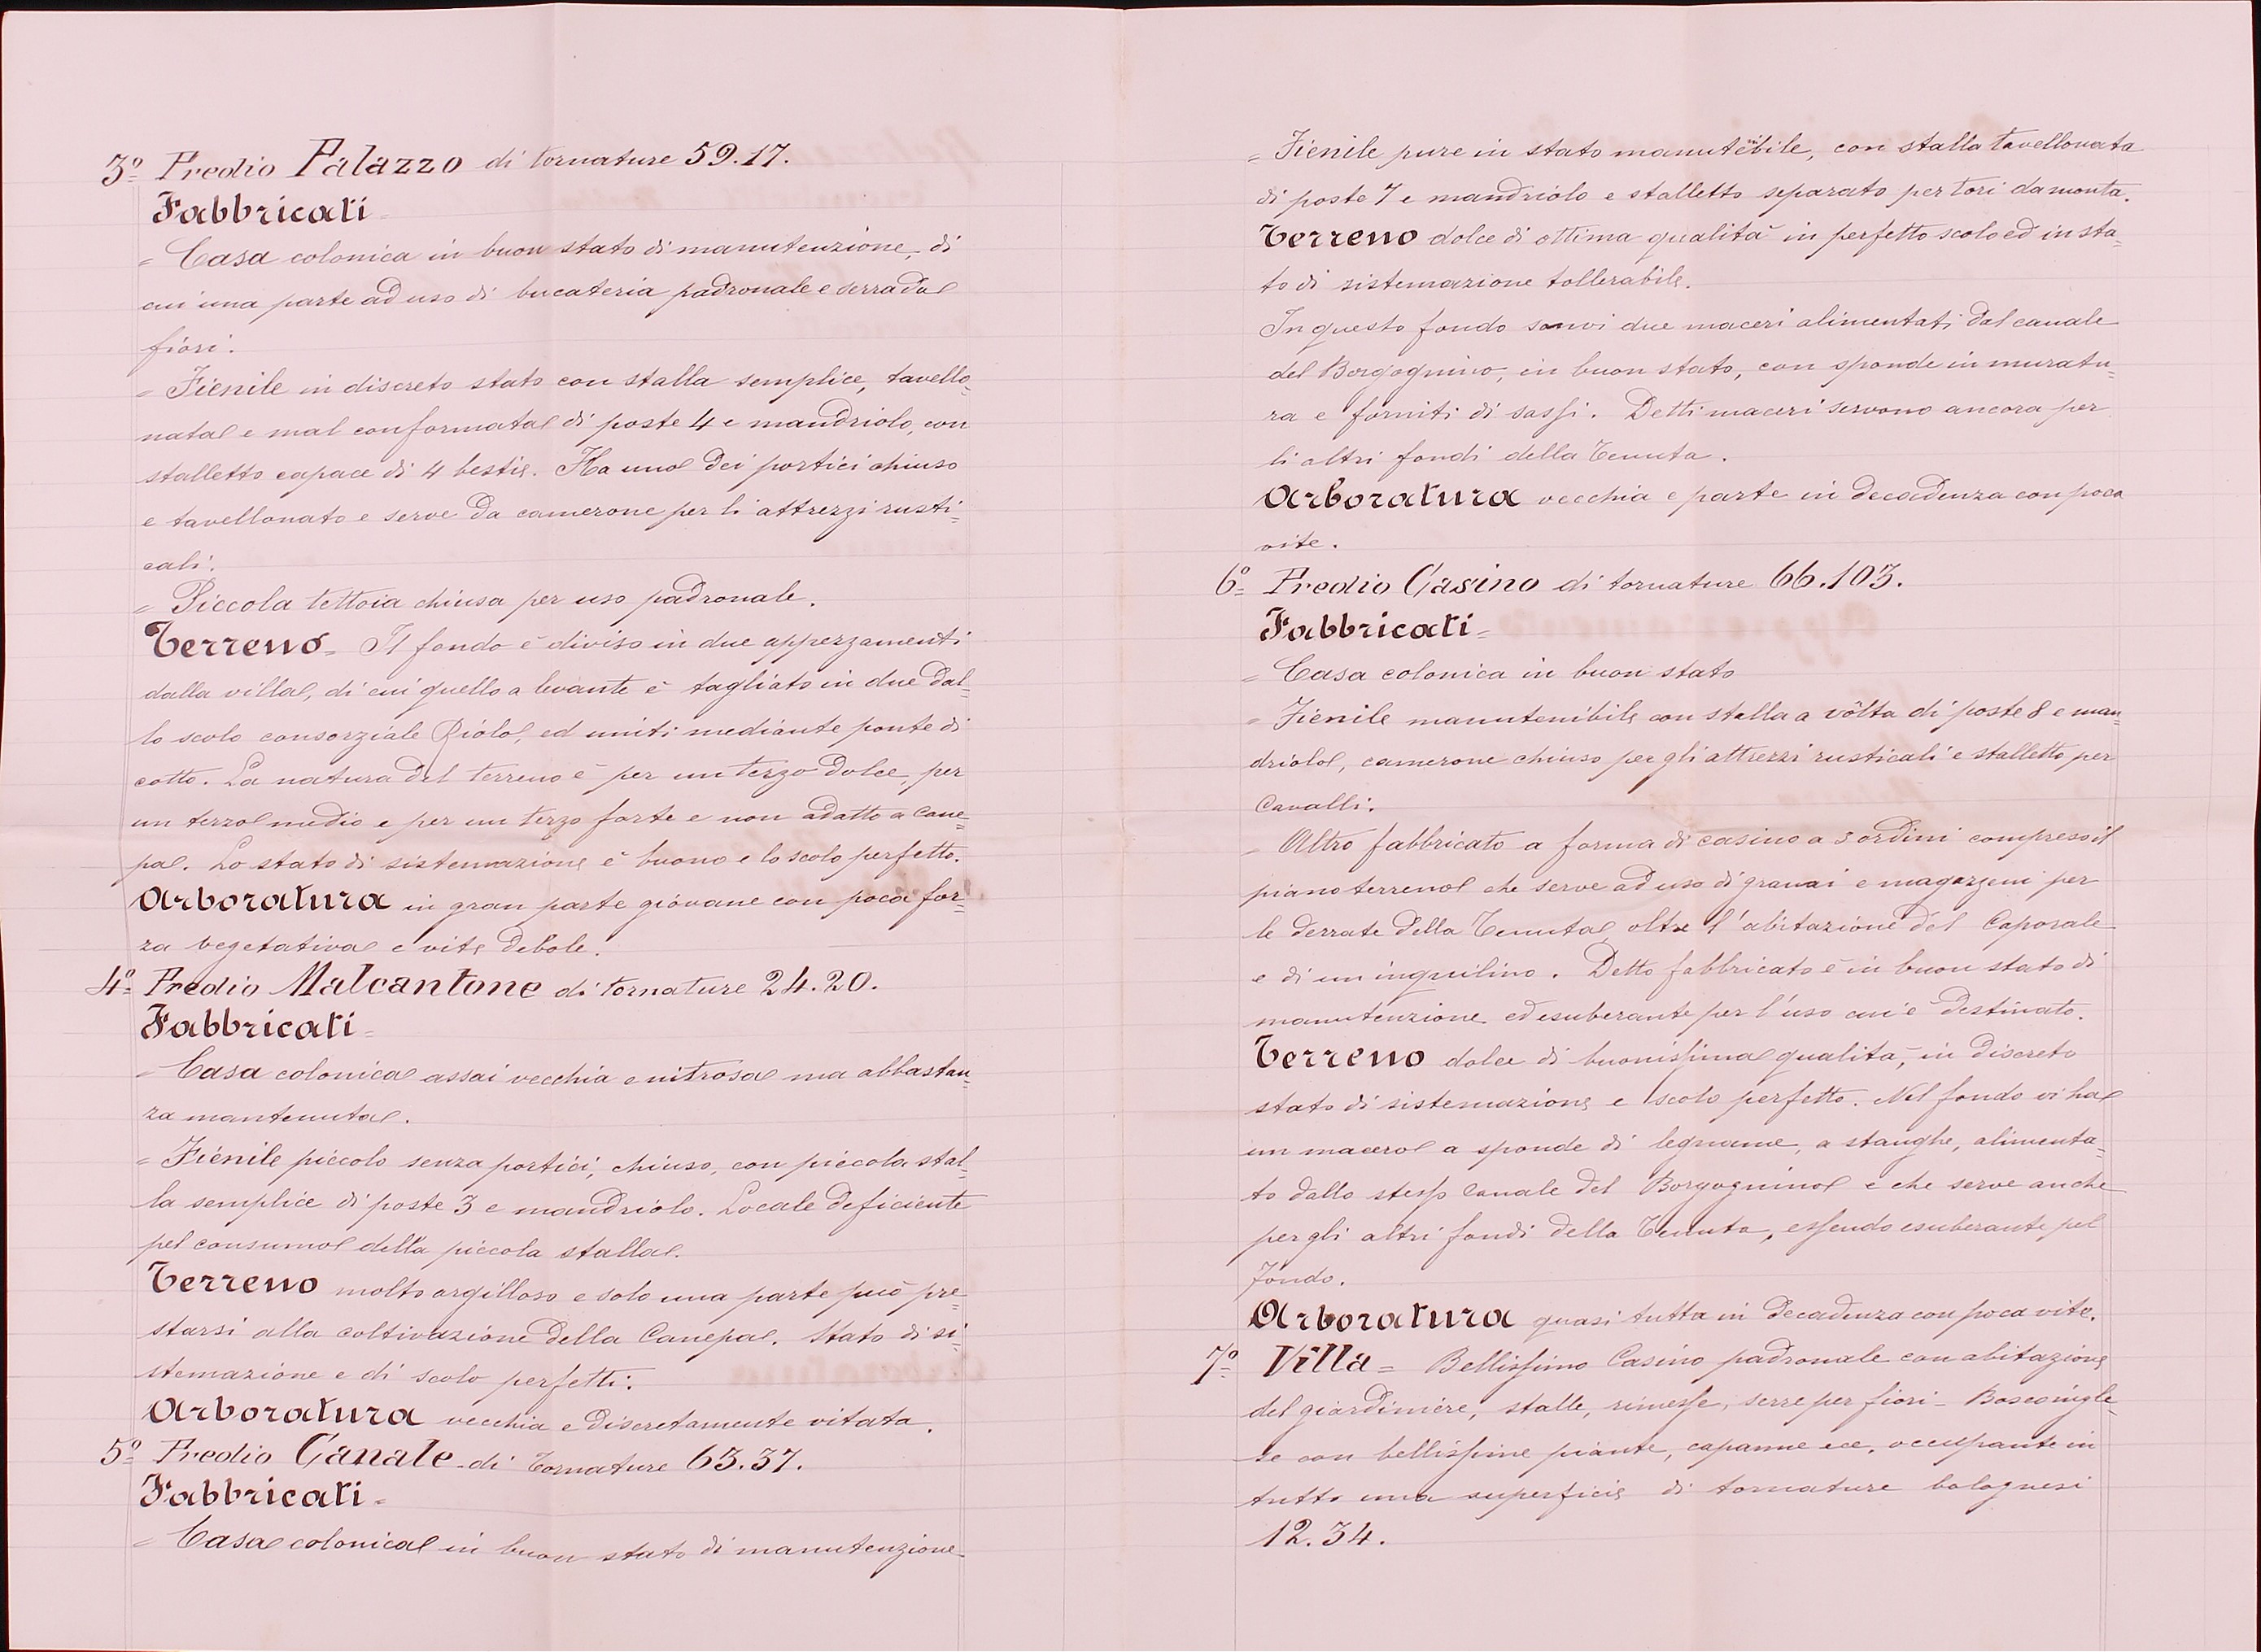 3º Predio Palazzo di tornature 59.17.
Fabbricati
= Casa colonica in buon stato di manutenzione, di
cui una parte ad uso di bucateria padronale e serra da
fiori.
= Fienile in discreto stato con stalla semplice, tavello=
nata e mal conformata di poste 4 e mandriolo, con
stalletto capace di 4 bestie. Ha uno dei portici chiuso
e tavellonato e serve da camerone per li attrezzi rusti=
cali.
= Piccola tettoia chiusa per uso padronale.
Terreno = Il fondo è diviso in due appezzamenti
dalla villa, di cui quello a levante è tagliato in due dal=
lo scolo consorziale Riolo, ed uniti mediante ponte di
cotto. La natura del terreno è per un terzo dolce, per
un terzo medio e per un terzo forte e non adatto a cane=
pa. Lo stato di sistemazione è buono e lo scolo perfetto.
Arboratura in gran parte giovane con poca for=
za vegetativa e vite debole.
4º= Predio Malcantone di tornature 24.20.
Fabbricati =
= Casa colonica assai vecchia e nitrosa ma abbastan=
za mantenuta.
= Fienile piccolo senza portici, chiuso, con piccola stal=
la semplice di poste 3 e mandriolo. Locale deficiente
pel consumo della piccola stalla.
Terreno molto argilloso e solo una parte può pre=
starsi alla coltivazione della Canepa. Stato di si=
stemazione e di scolo perfetti.
Arboratura vecchia e discretamente vitata.
5º= Predio Canale di Tornature 63.37.
Fabbricati =
= Casa colonica in buon stato di manutenzione
= Fienile pure in stato manutenibile, con stalla tavellonata
di poste 7 e mandriolo e stalletto separato per tori da monta.
Terreno dolce di ottima qualità in perfetto scolo ed in sta=
to di sistemazione tollerabile.
In questo fondo sonvi due maceri alimentati dal canale
del Borgognino, in buon stato, con sponde in muratu=
ra e forniti di sassi. Detti maceri servono ancora per
li altri fondi della Tenuta.
Arboratura vecchia e parte in decadenza con poca
vite.
6º= Predio Casino di tornature 66.103.
Fabbricati =
= Casa colonica in buon stato
= Fienile manutenibile con stalla a vôlta di poste 8 e man=
driolo, camerone chiuso per gli attrezzi rusticali e stalletto per
Cavalli.
= Altro fabbricato a forma di casino a 3 ordini compreso il
piano terreno che serve ad uso di granai e magazzeni per
le derrate della Tenuta oltre l'abitazione del Caporale
e di un inquilino. Detto fabbricato è in buon stato di
manutenzione ed esuberante per l'uso cui è destinato.
Terreno dolce di buonissima qualità, in discreto
stato di sistemazione e scolo perfetto. Nel fondo vi ha
un macero a sponde di legname, a stanghe, alimenta=
to dallo stesso Canale del Borgognino e che serve anche
per gli altri fondi della Tenuta, essendo esuberante pel
fondo.
Arboratura quasi tutta in decadenza con poca vite.
7º= Villa = Bellissimo Casino padronale con abitazione
del giardiniere, stalle, rimesse, serre per fiori - Bosco ingle=
se con bellissime piante, capanne ecc. occupante in
tutto una superficie di tornature bolognesi
12.34.